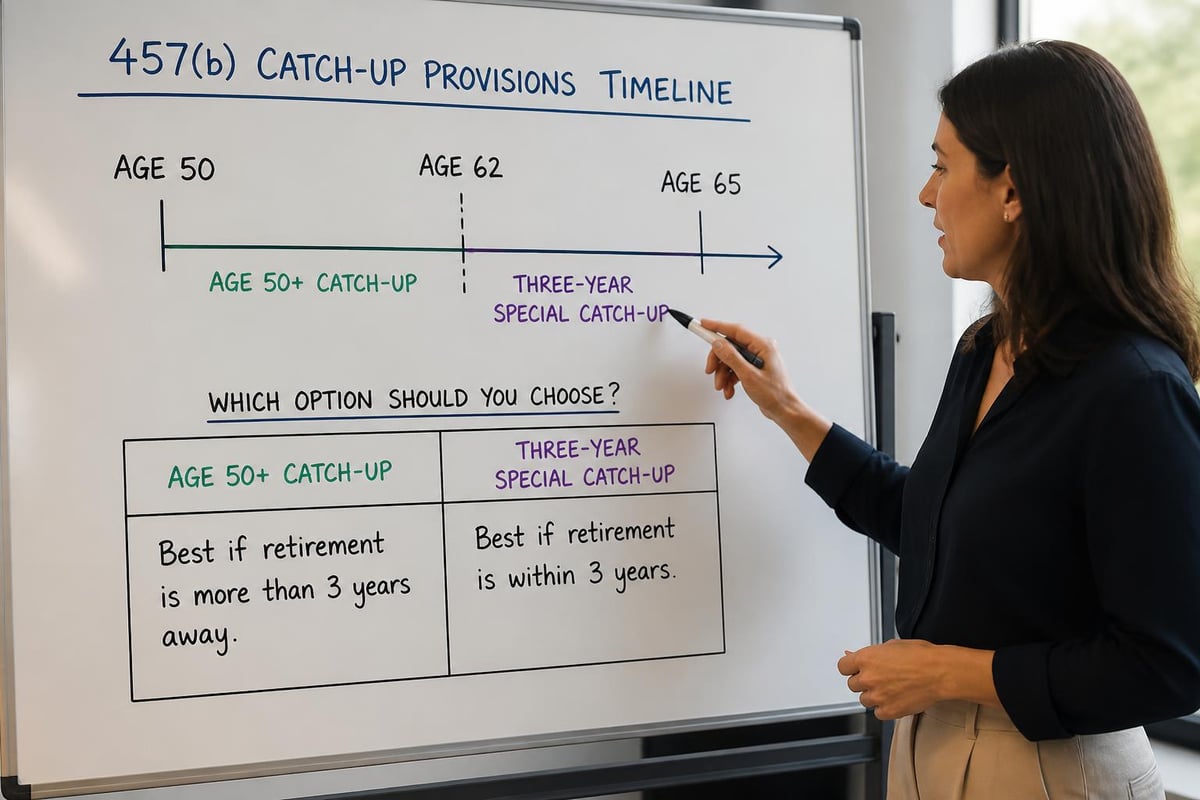 457(b) CATCH-UP PROVISIONS TIMELINE
AGE 50
AGE 62
AGE 65
AGE 50+ CATCH-UP
THREE-YEAR
SPECIAL CATCH-UP
WHICH OPTION SHOULD YOU CHOOSE?
AGE 50+ CATCH-UP
THREE-YEAR
SPECIAL CATCH-UP
Best if retirement
is more than 3 years
away.
Best if retirement
is within 3 years.